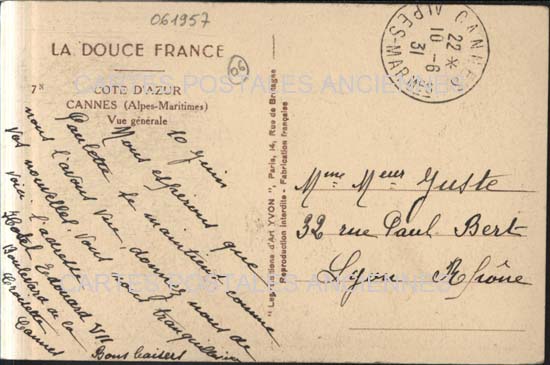 061957
LA DOUCE FRANCE
06
7N
COTE D'AZUR
CANNES (Alpes-Maritimes)
Vue générale
CANNES
22 *
10 -6
31
ALPES-MARMES
CARTES POSTALES ANCIENNES
"Les Éditions d'Art YVON", Paris, 14, Rue de Bretagne
Reproduction interdite - Fabrication française
10 Juin
Nous espérons que
Paulette se maintient comme
nous l'avons vue, donnez nous de
vos nouvelles. Vous
Voici l'adresse
Hotel Edouard VII
Boulevard de la
Croisette
Cannes
Bons baisers
Mme Meur Juste
32 rue Paul Bert
Lyon Rhône
CARTES POSTALES ANCIENNES